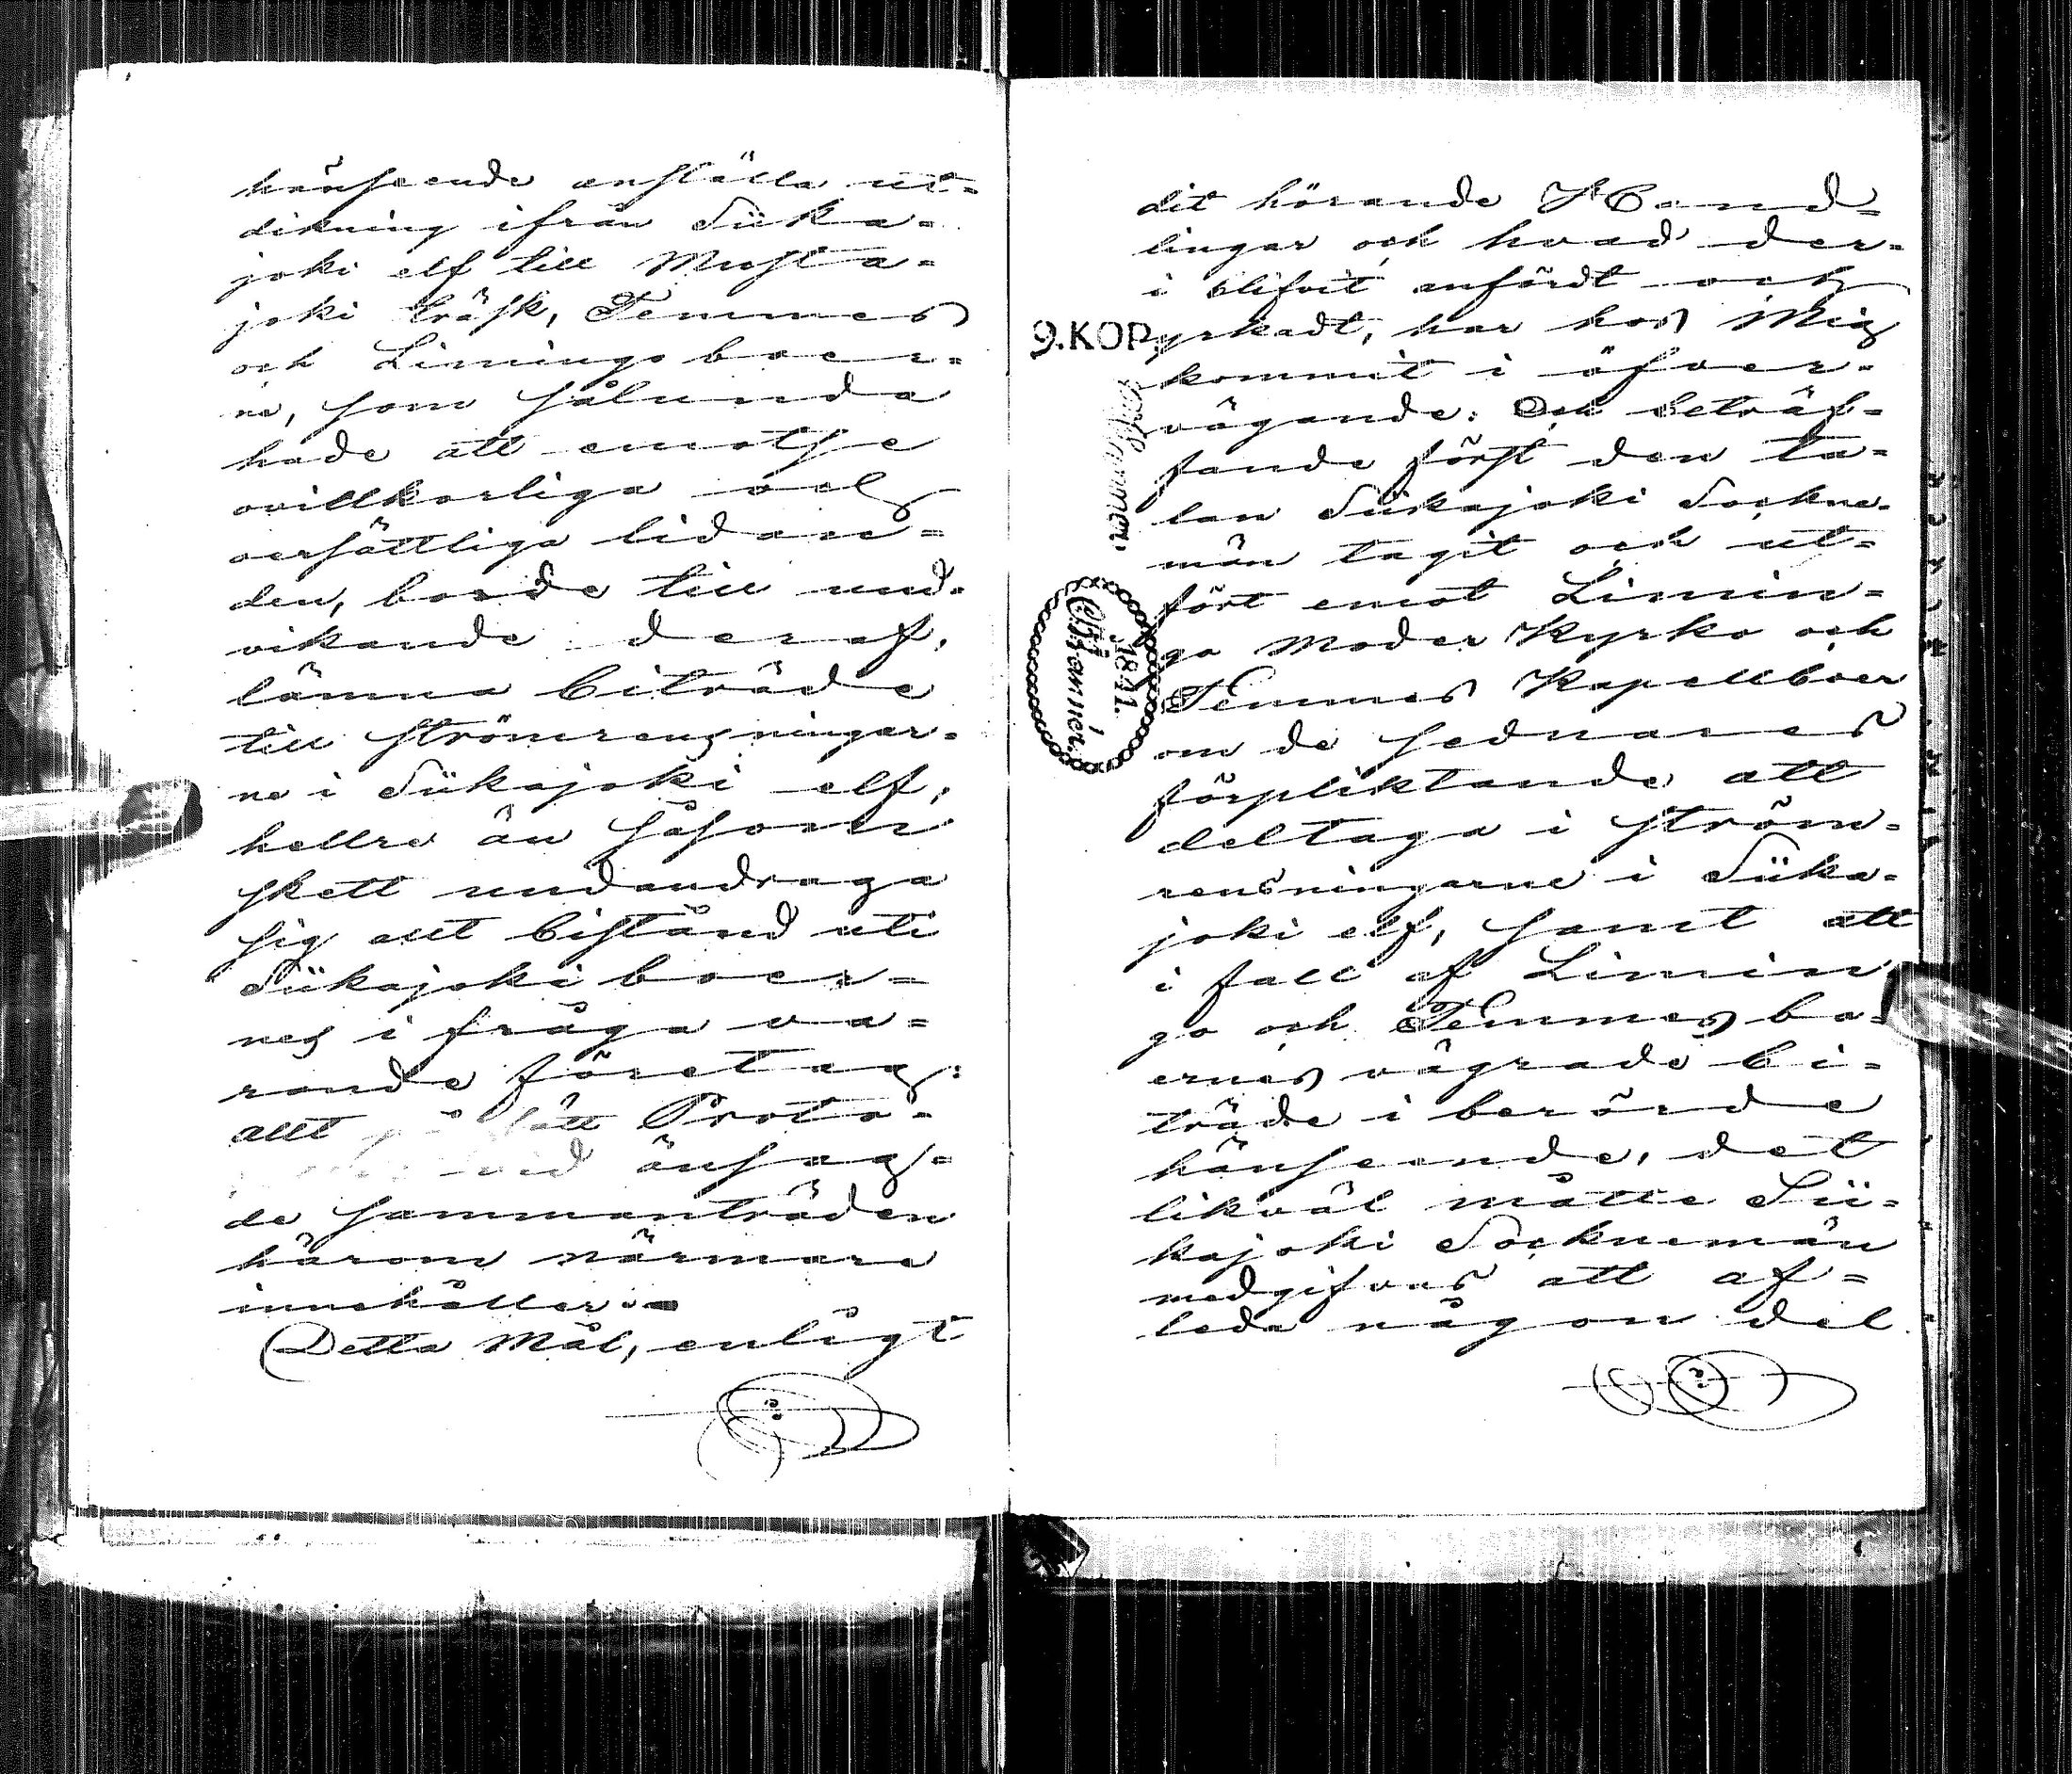 hänseende anställa ut-
dikning ifrån Siika-
joki elf till Musta-
joki träsk, Temmes
och Limingo boer-
ne, som sålunda
hade att emotse
ovillkorliga och
oersättliga lidan-
den, borde till und-
vikande deraf,
lämna biträde
till strömrensningar-
ne i Siikajoki elf,
hellre än såsom
skett undandraga
sig allt bistånd uti
Siikajoki boer-
nes i fråga va-
rande företag:
allt Proto-
vid ånsag-
de sammanträden
härom närmare
innehåller.
Detta Mål, enligt
dit hörande Hand-
lingar och hvad der-
i blifvit anfördt och
yrkadt, har hos Mig
kommit i öfver-
vägande: Och beträf-
fande först den ta-
lan Siikajoki Sockne-
män tagit och ut-
fört emot Limin-
go Moder Kyrko och
Temmes Kapellboer
om de sednares
förpliktande att
deltaga i ström-
rensningarne i Siika-
joki elf, samt att
i fall af Limin
go och Temmes bo-
ernes vägrade bi-
träde i berörde
hänseende, det
likväl måtte Sii-
kajoki Socknemän
medgifvas att af-
leda någon del
9.KOP.
1841.